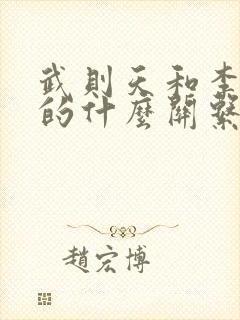 武則天和李
的什麼關繫
趙宏博